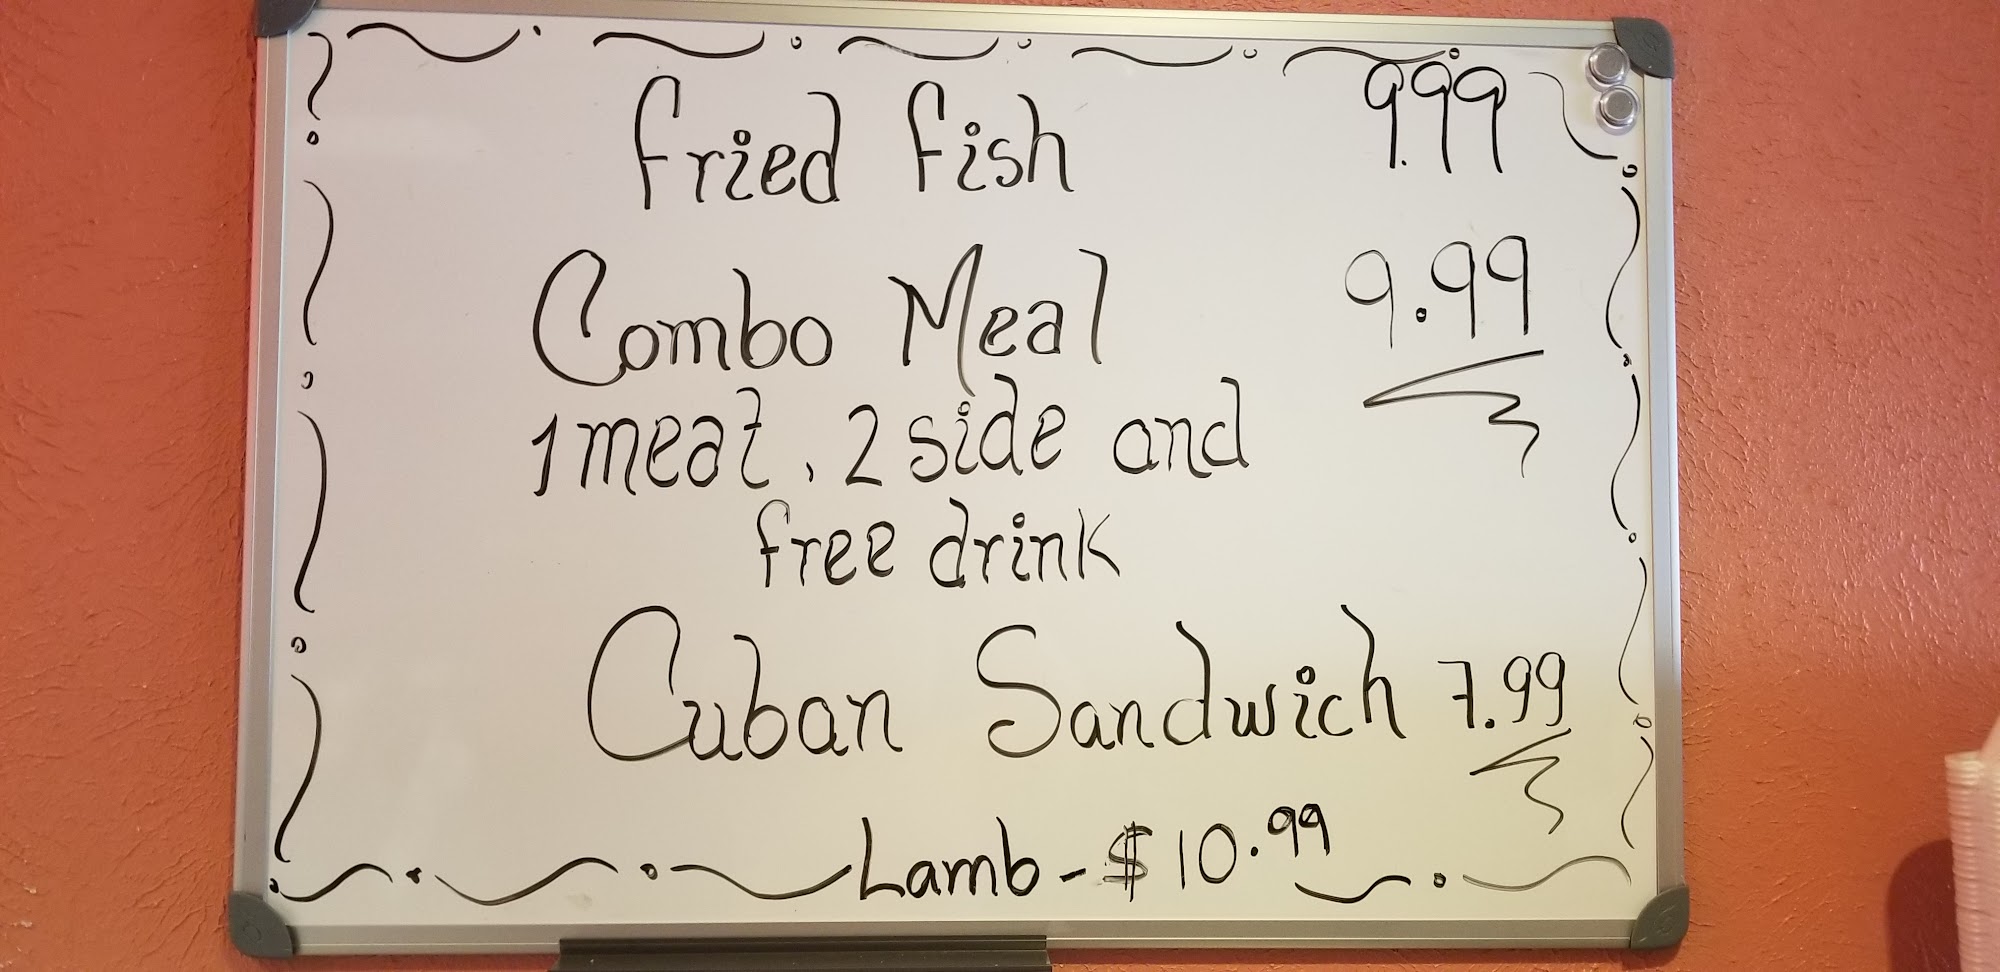 Fried Fish 9.99
Combo Meal 9.99
1 meat, 2 side and
free drink
Cuban Sandwich 7.99
Lamb - $10.99